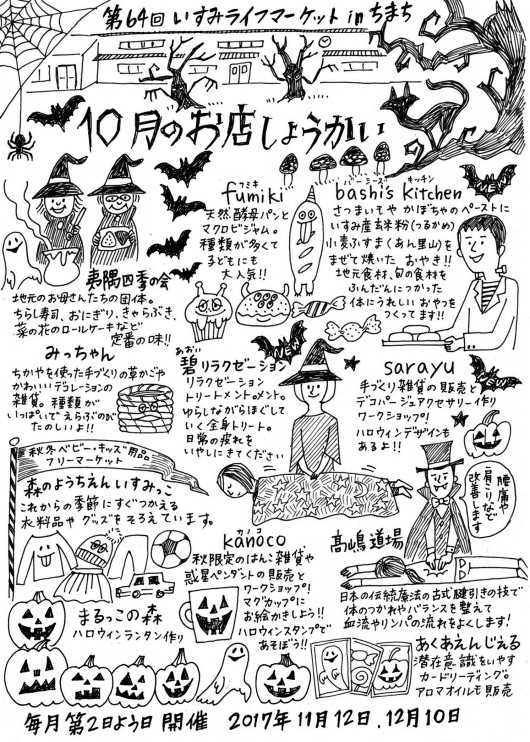 第64回 いすみライフマーケット in ちまち
10月のお店しょうかい
夷隅四季の会
地元のお母さんたちの団体。
ちらし寿司、おにぎり、きゃらぶき、
菜の花のロールケーキなど
定番の味!!
フミキ
fumiki
天然酵母パンと
マクロビジャム。
種類が多くて
子どもにも
大人気!!
バーシーズ キッチン
bashi's kitchen
さつまいもや かぼちゃのペーストに
いすみ産古代米粉(つるかめ)
小麦ふすま(あん里山)を
まぜて焼いた おやき!!
地元食材、旬の食材を
ふんだんにつかった
体にうれしい おやつを
つくってます!!
みっちゃん
ちかやを使った手づくりの草かごや
かわいいデコレーションの
雑貨。種類が
いっぱいで えらぶのが
たのしいよ!!
あおい
碧リラクゼーション
リラクゼーション
トリートメントメント。
ゆらしながらほぐして
いく全身トリート。
日常の疲れを
いやしにきてください
sarayu
手づくり雑貨の販売と
デコパージュアクセサリー作り
ワークショップ!
ハロウィンデザインも
あるよ!!
秋冬ベビー・キッズ用品。
フリーマーケット
森のようちえん いすみっこ
これからの季節にすぐつかえる
衣料品や グッズをそろえています。
カノコ
kanoco
秋限定のはんこ雑貨や
惑星ペンダントの販売と
ワークショップ!
マグカップに
お絵かきしよう!!
ハロウィンスタンプで
あそぼう!!
腰痛や
肩こりなど
改善します
髙嶋道場
日本の伝統療法の古式腱引きの技で
体のつかれやバランスを整えて
血流やリンパの流れをよくします!
まるっこの森
ハロウィンランタン作り
あくあえんじぇる
潜在意識をいやす
カードリーディング。
アロマオイルも販売
毎月第2日よう日 開催 2017年11月12日、12月10日